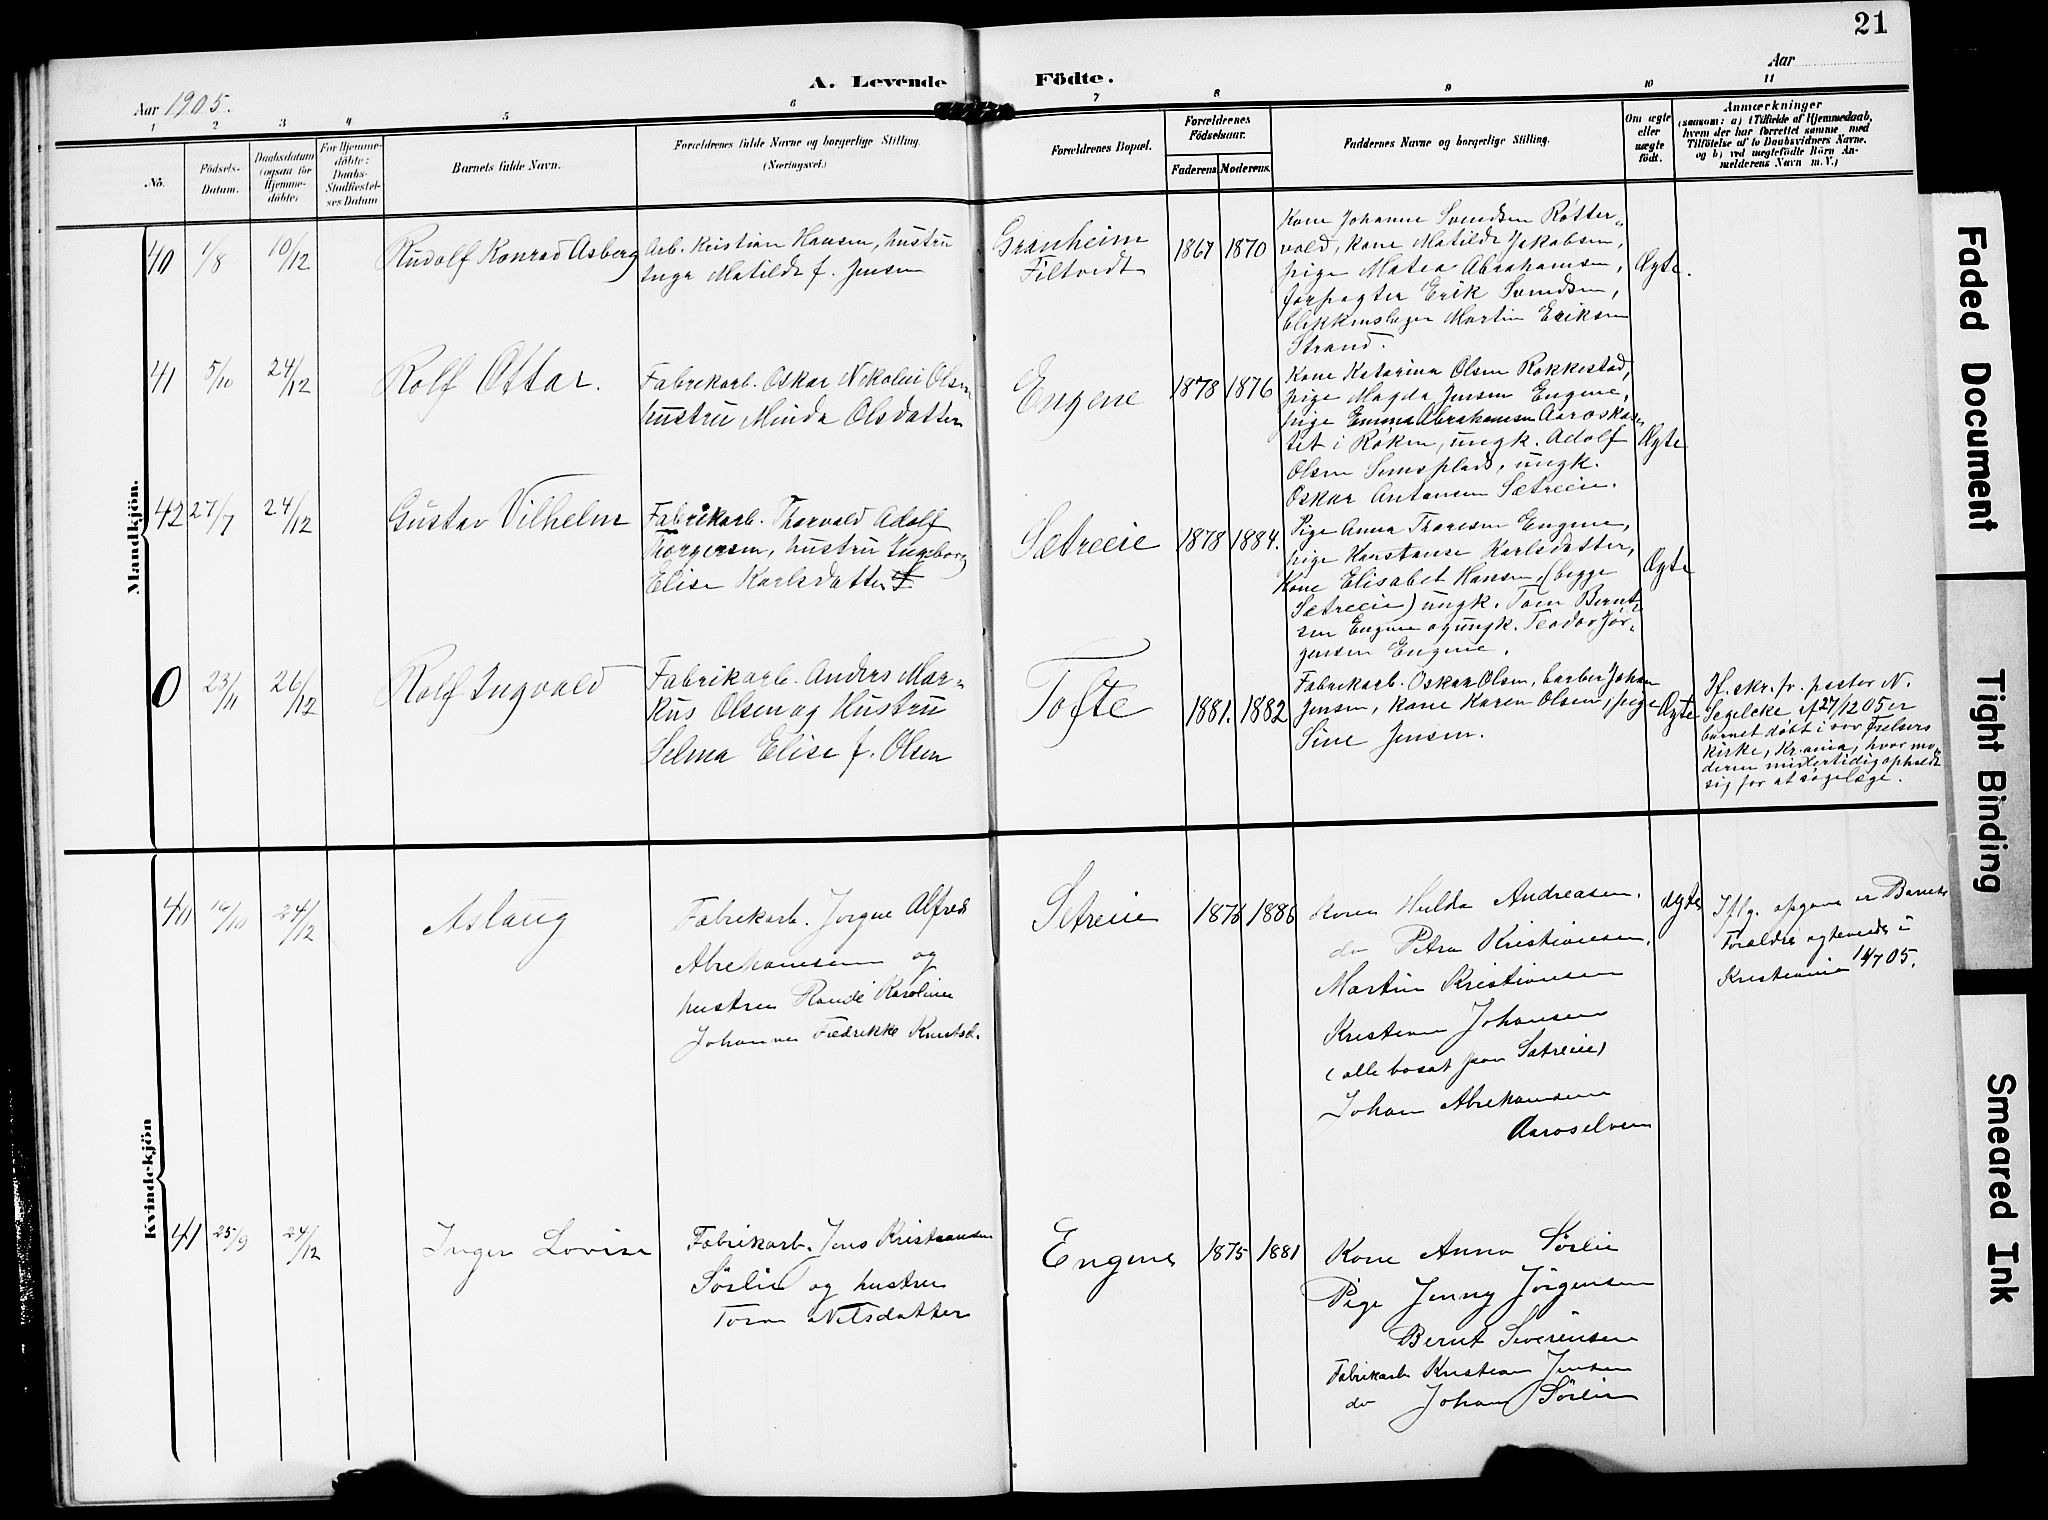 21
A. Levende Födte.
Aar 1905.
Aar
1 2 3 4 5 6 7 8 9 10 11
No.
Födsels-
Datum.
Daabsdatum
(ogsaa for
Hjemme-
döbte)
For Hjemme-
döbte:
Daabs-
Stadfæstel-
ses Datum
Barnets fulde Navn.
Forældrenes fulde Navne og borgerlige Stilling.
(Næringsvei.)
Forældrenes Bopæl.
Forældrenes
Födselsaar.
Faderens. Moderens.
Faddernes Navne og borgerlige Stilling.
Om ægte
eller
uægte
födt.
Anmærkninger
(saasom: a) i Tilfælde af Hjemmedaab,
hvem der har forrettet samme, med
Tilföielse af to Daabsvidners Navne,
og b) ved uægtefödte Börn An-
melderens Navn m. V.)
Mandkjön.
40 1/8 10/12 Rudolf Konrad Asberg
Arb. Kristian Hansen, hustru
Inga Matilde f. Jensen
Granheim
Filtvedt
1867 1870
Kone Johanne Svendsen Røtter-
vold, kone Matilde Jakobsen,
pige Matea Abrahamsen,
forpagter Erik Svendsen,
blikkenslager Martin Eriksen
Strand.
Ægte.
41 5/10 24/12 Rolf Ottar.
Fabrikarb. Oskar Nikolai Olsen
hustru Minda Olsdatter
Engene
1878 1876
Kone Katarina Olsen Rokkestad,
pige Magda Jensen Engene,
pige Emma Abrahamsen Aaroskas-
tet i Røken, ungk. Adolf
Olsen Semsplads, ungk.
Oskar Antonsen Sætreeie.
Ægte
42 27/7 24/12 Gustav Vilhelm
Fabrikarb. Thorvald Adolf
Thorgersen, hustru Ingeborg
Elise Karlsdatter
Sætreeie
1878 1884.
Pige Anna Thoresen Engene,
pige Konstanse Karlsdatter,
Kone Elisabet Hansen, (begge
Sætreeie) ungk. Tom Bernt-
sen Engene og ungk. Teodor Jør-
gensen Engene.
Ægte
0 23/11 26/12 Rolf Ingvald
Fabrikarb. Anders Mar-
kus Olsen og Hustru
Selma Elise f. Olsen
Tofte
1881. 1882
Fabrikarb. Oskar Olsen, barber Johan
Jensen, kone Karen Olsen, pige
Sine Jensen.
Ægte
If. skr. fr. pastor N.
Segelcke af 27/12 05 er
barnet døbt i vor Frelsers
Kirke, Kr.ania, hvor mo-
deren midlertidig opholdt
sig for at søge læge.
Kvindekjön
40 24/12 Aslaug
Fabrikarb. Jørgen Alfred
Abrehamsen og
hustru Randi Karoline
Johanne Fredrikke Knutsd.
Sætreeie
1876 1886
Kone Hulda Andreasen.
do Petra Kristiansen.
Martin Kristiansen
Kristian Johansen
(alle bosat paa Sætreeie)
Johan Abrehamsen
Aaroselven
ægte
Iflg. opgave er Barnets
Forældre ægteviede i
Kristiania 14/7 05.
41 25/9 24/12 Inger Lovise
Fabrikarb. Jens Kristiansen
Sörlie og hustru
Tora Nilsdatter
Engene
1875 1881
Kone Anna Sörlie
Pige Jenny Jörgensen
Bernt Severensen
Fabrikarb Kristian Jensen
do Johan Sörlie
Faded Document
Tight Binding
Smeared Ink